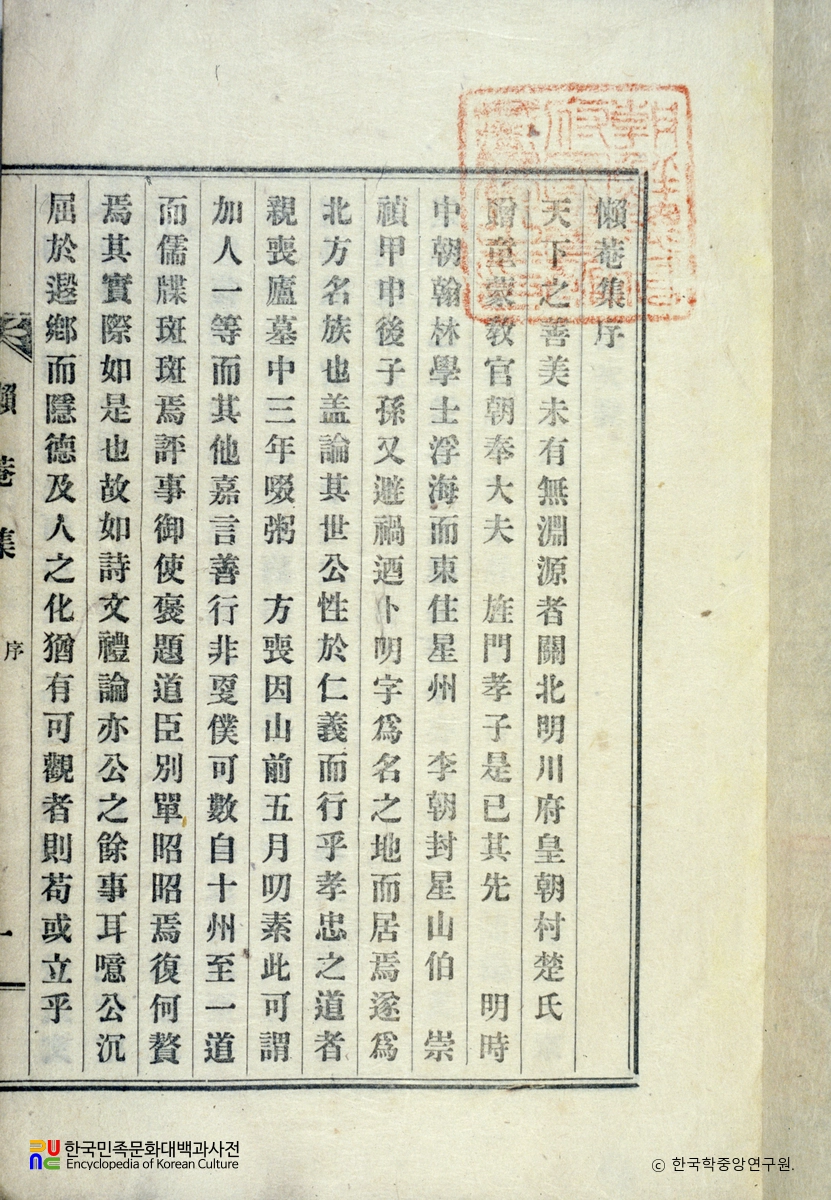 懶菴集序
天下之善美未有無淵源者關北明川府皇朝村楚氏
贈童蒙敎官朝奉大夫 旌門孝子是已其先 明時
中朝翰林學士浮海而東住星州 李朝封星山伯 崇
禎甲申後子孫又避禍迺卜明字爲名之地而居焉遂爲
北方名族也盖論其世公性於仁義而行乎孝忠之道者
親喪廬墓中三年啜粥 方喪因山前五月叨素此可謂
加人一等而其他嘉言善行非更僕可數自十州至一道
而儒牒斑斑焉評事御使褒題道臣別單昭昭焉復何贅
焉其實際如是也故如詩文禮論亦公之餘事耳噫公沉
屈於遐鄕而隱德及人之化猶有可觀者則苟或立乎
懶菴集 序 一
한국민족문화대백과사전
Encyclopedia of Korean Culture
ⓒ 한국학중앙연구원.